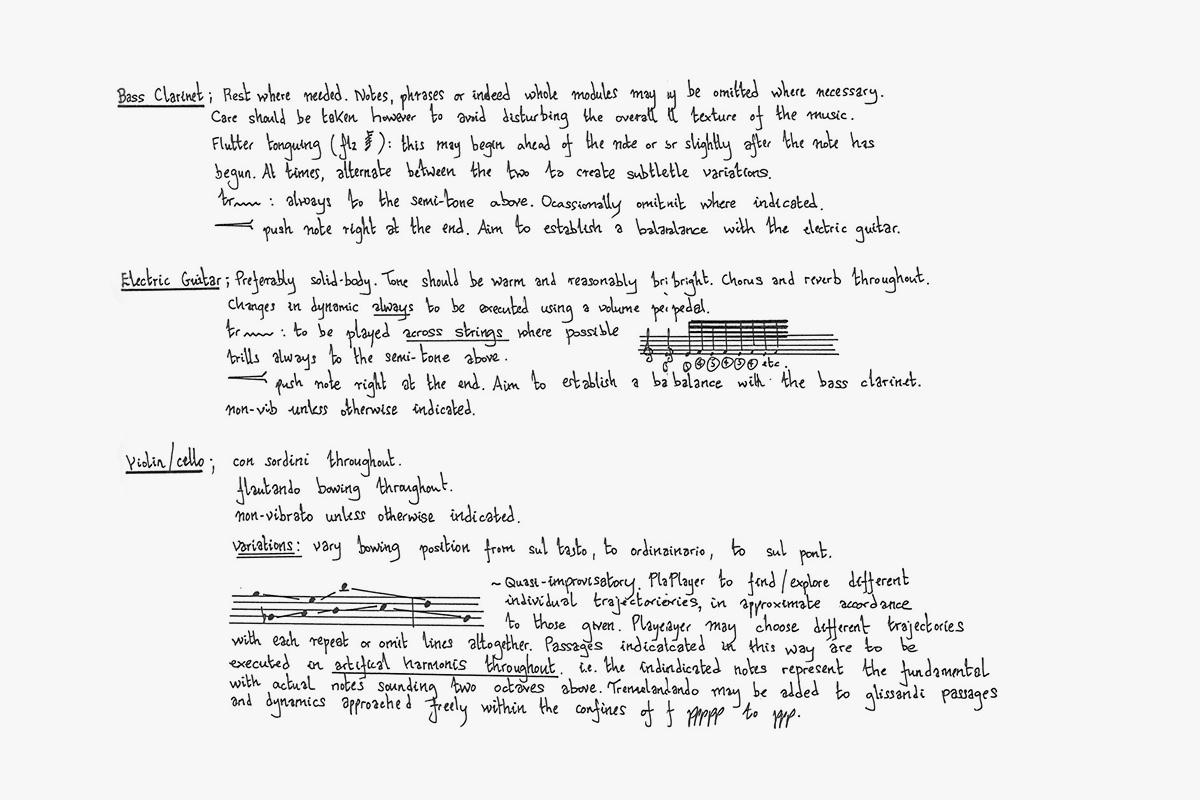 Bass Clarinet; Rest where needed. Notes, phrases or indeed whole modules may y be omitted where necessary.
Care should be taken however to avoid disturbing the overall ll texture of the music.
Flutter tonguing (flz): this may begin ahead of the note or sr slightly after the note has
begun. At times, alternate between the two to create subtletle variations.
tr~~~ : always to the semi-tone above. Ocassionally omitnit where indicated.
push note right at the end. Aim to establish a balaralance with the electric guitar.
Electric Guitar; Preferably solid-body. Tone should be warm and reasonably bribright. Chorus and reverb throughout.
Changes in dynamic always to be executed using a volume peipedal.
tr~~~ : to be played across strings where possible
trills always to the semi-tone above.
⓪④⑤④⑤④ etc.
push note right at the end. Aim to establish a ba balance with the bass clarinet.
non-vib unless otherwise indicated.
Violin/cello; con sordini throughout.
flautando bowing throughout.
non-vibrato unless otherwise indicated.
Variations: vary bowing position from sul tasto, to ordinainario, to sul pont.
~ Quasi-improvisatory. PlaPlayer to find/explore different
individual trajectorieries, in approximate accordance
to those given. Playeayer may choose different trajectories
with each repeat or omit lines altogether. Passages indicatcated in this way are to be
executed in artifical harmonis throughout. i.e. the indindicated notes represent the fundamental
with actual notes sounding two octaves above. Tremolandando may be added to glissandi passages
and dynamics approached freely within the confines of f ppppp to ppp.